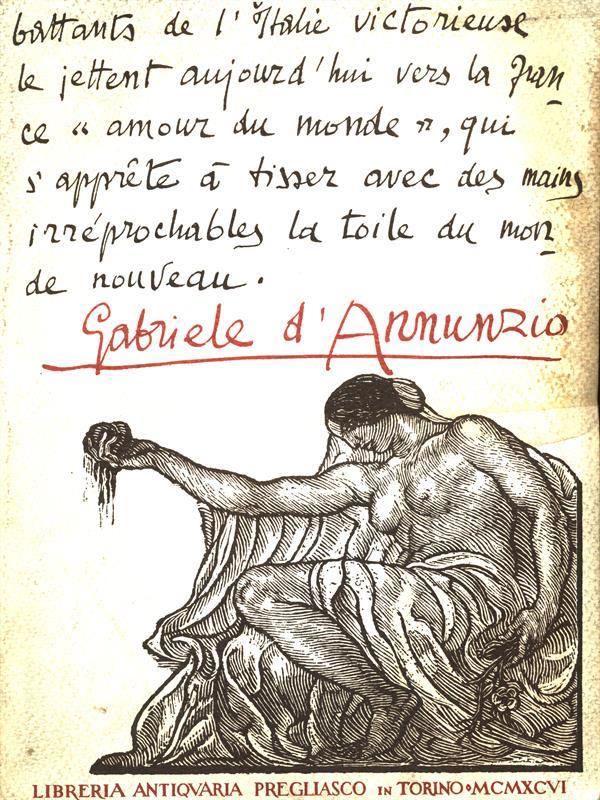 battants de l'Italie victorieuse
le jettent aujourd'hui vers la Fran
ce « amour du monde », qui
s'apprête à tisser avec des mains
irréprochables la toile du mon
de nouveau.
Gabriele d'Annunzio
LIBRERIA ANTIQVARIA PREGLIASCO IN TORINO•MCMXCVI